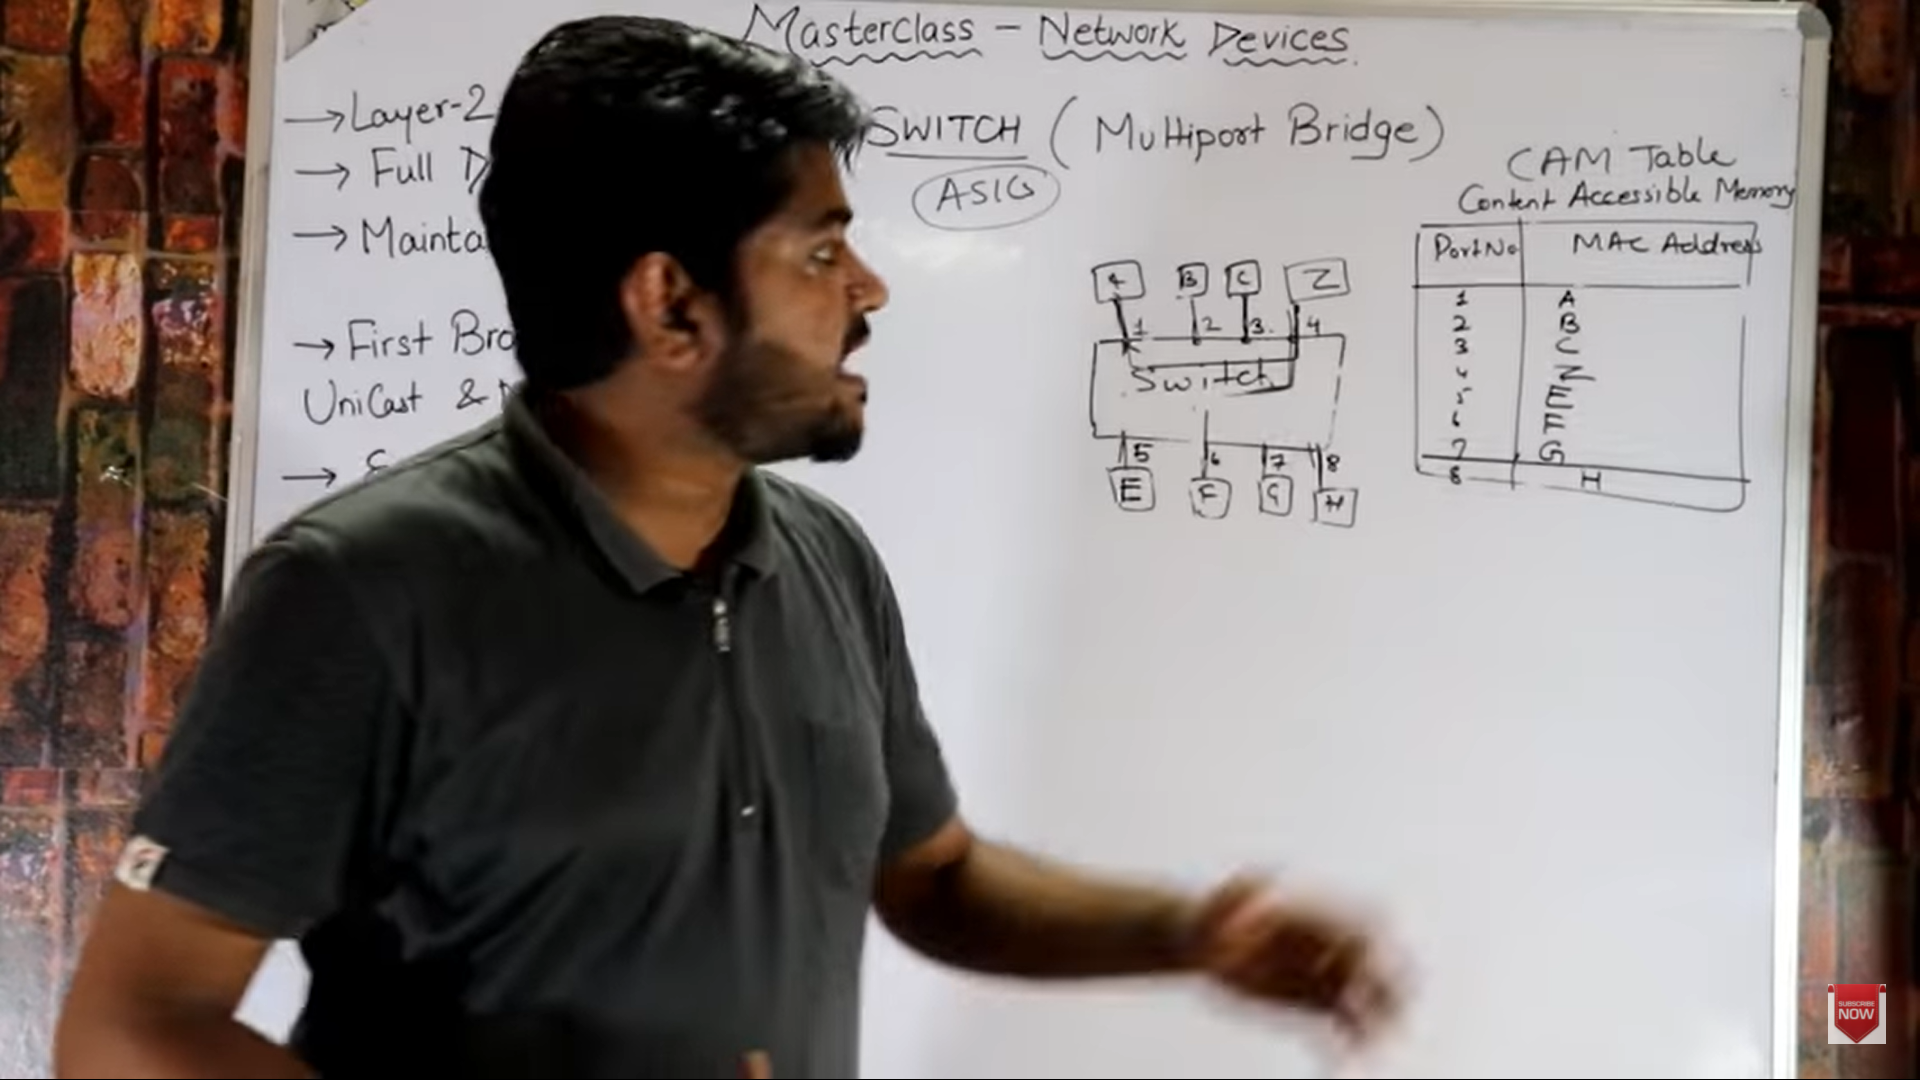 Masterclass - Network Devices
→ Layer-2
→ Full
→ Mainta
→ First Bro
UniCast &
→
SWITCH (Multiport Bridge)
ASIC
A B C Z
1 2 3. 4
Switch
5 6 7 8
E F G H
CAM Table
Content Accessible Memory
Port No MAC Address
1 A
2 B
3 C
4 Z
5 E
6 F
7 G
8 H
SUBSCRIBE
NOW